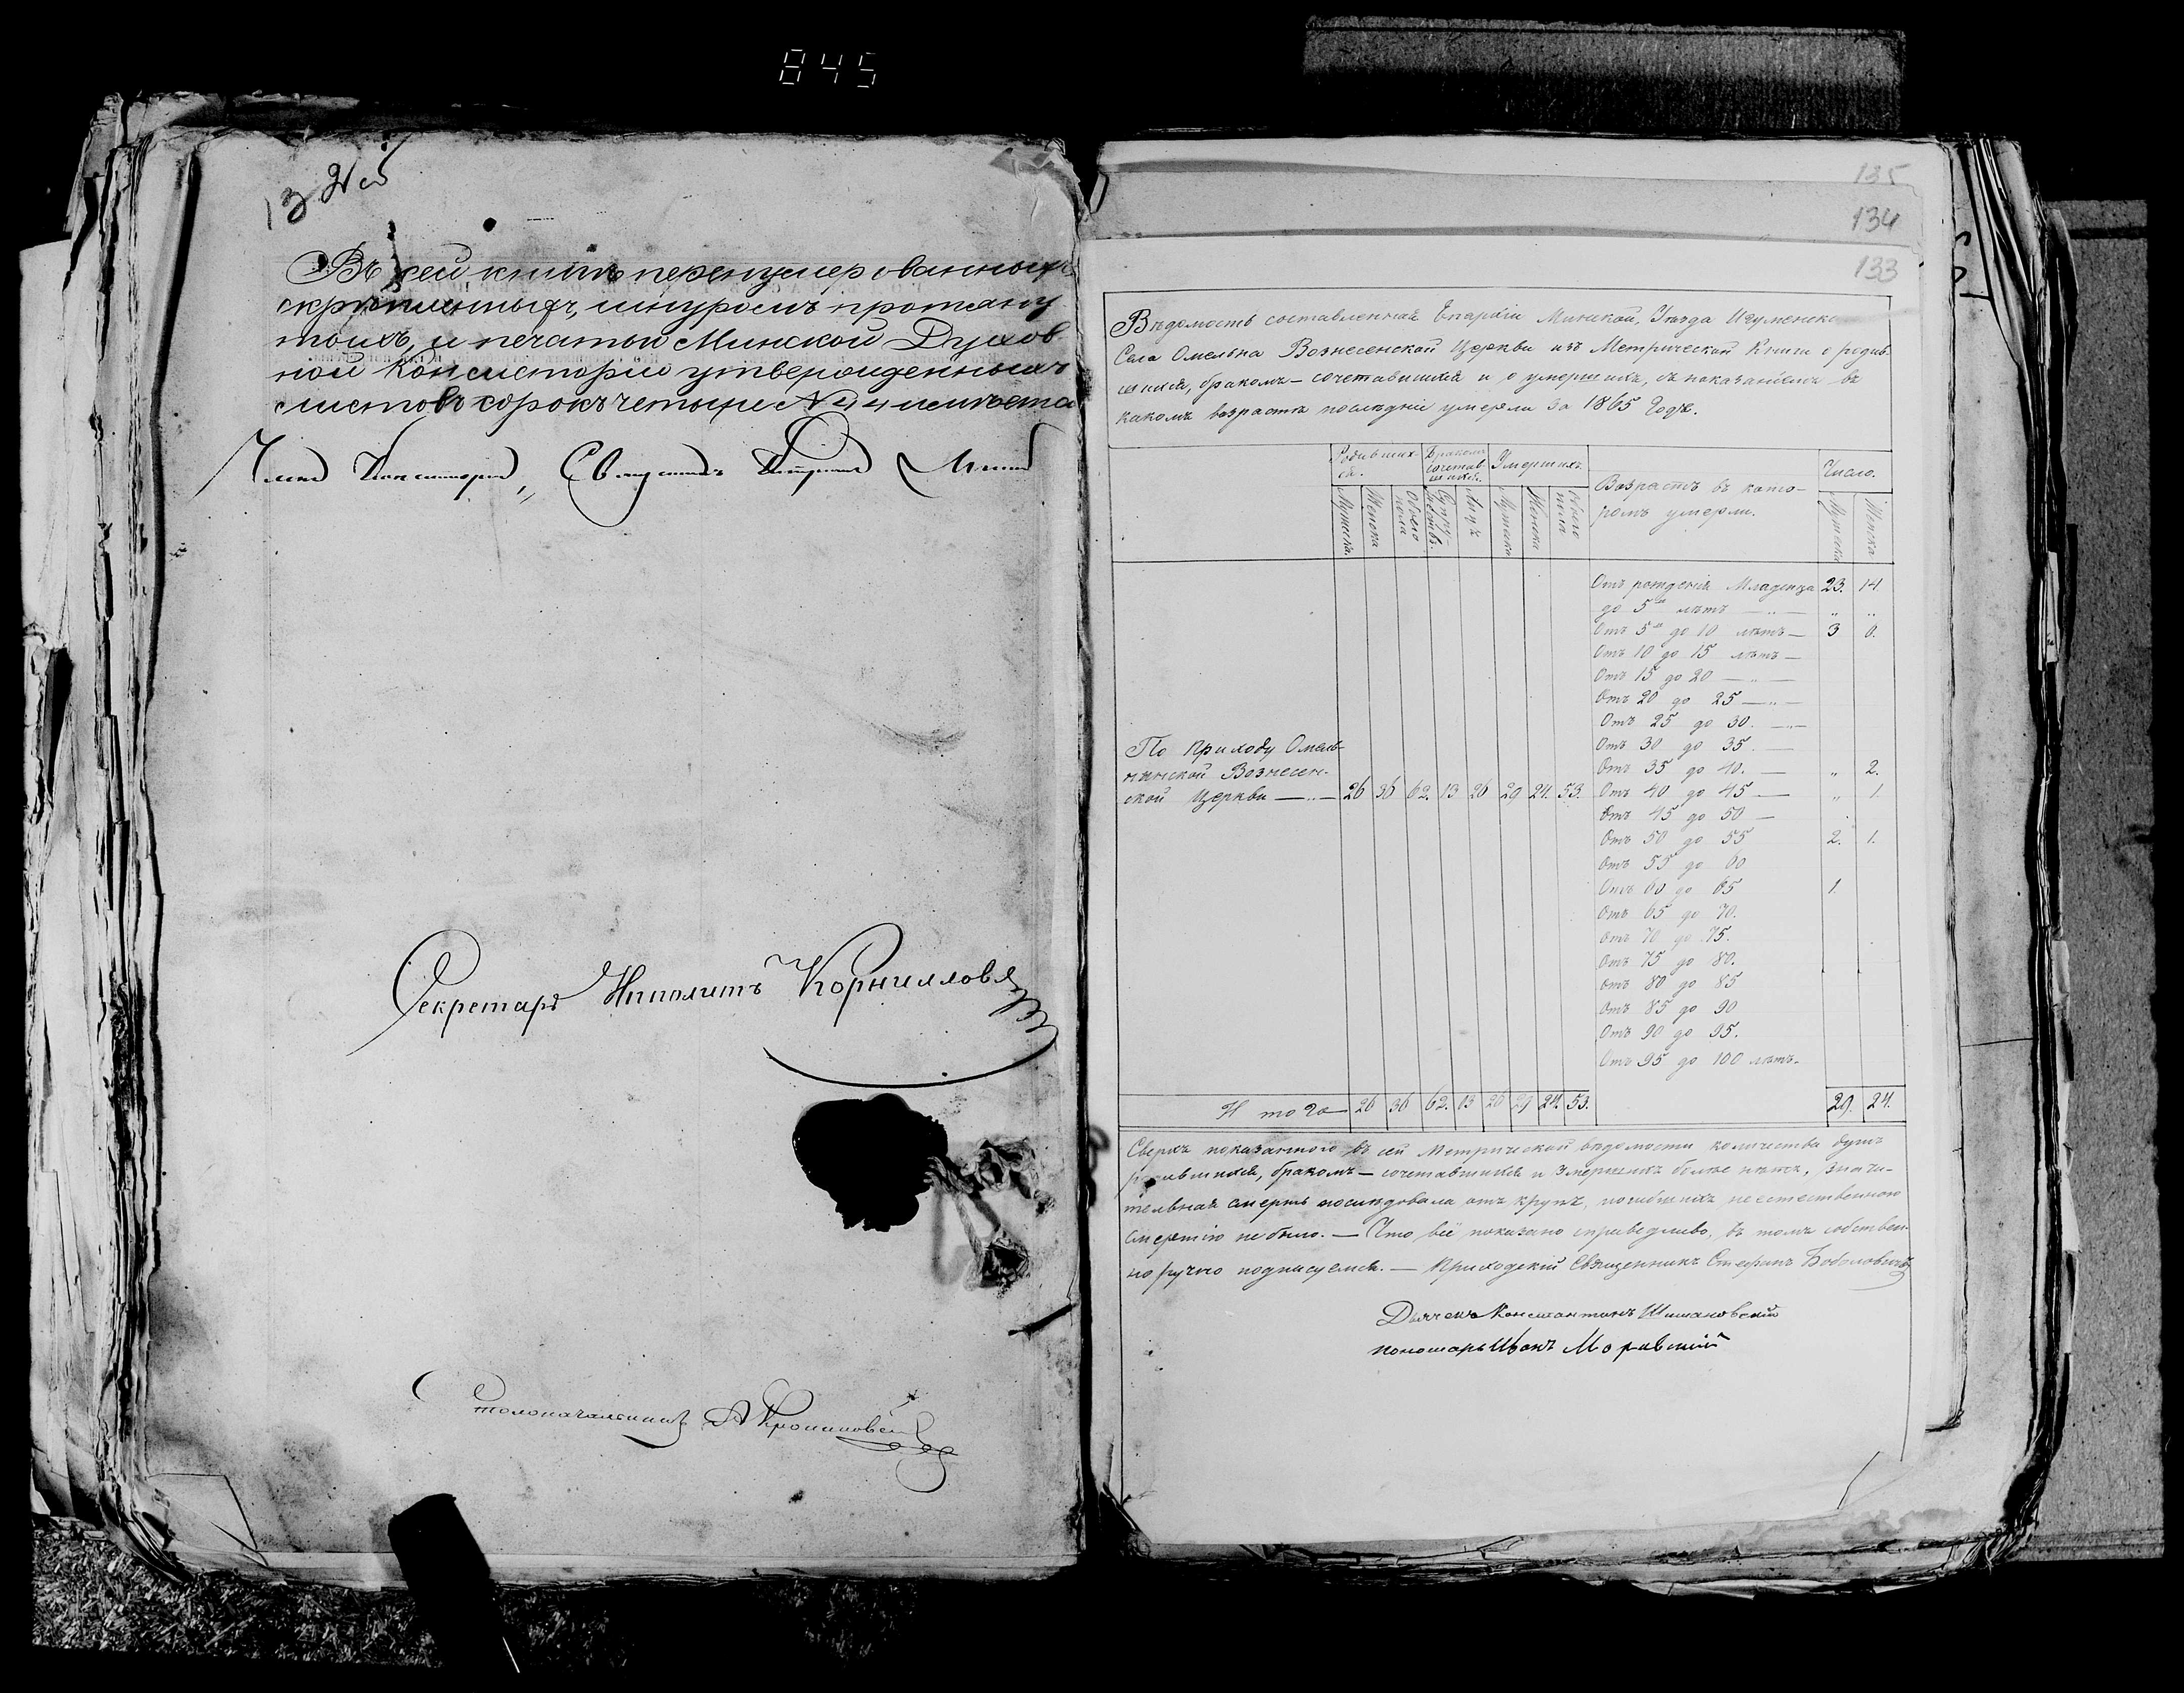 845
13
Въ сей книгѣ перенумерованныхъ
скрѣпленныхъ, шнуромъ протяну
тыхъ, и печатью Минской Духов
ной Консисторіи утвержденныхъ
листовъ сорокъ четыре №44 листа
Членъ Консисторіи, Священникъ
Секретарь Ипполитъ Корниловъ
Столоначальникъ А
135
134
133
Вѣдомость составленная Епархіи Минской, Уѣзда Игуменска
Села Омельна Вознесенской Церкви изъ Метрической Книги о родив-
шихся, бракомъ-сочетавшихся и о умершихъ, съ показаніемъ въ
какомъ возрастѣ послѣдніе умерли за 1865 Годъ.
Родивших-
ся.
Бракомъ
сочетав-
шихся.
Умершихъ
Возрастъ въ кото-
ромъ умерли.
Число.
Мужска.
Женска
Обоего
пола
Супру-
жествъ.
Лицъ
Мужска
Женска
Обоего
пола
Мужска
Женска
Отъ рожденія Младенца 23. 14.
до 5ти лѣтъ — „ — „ „
Отъ 5ти до 10 лѣтъ — 3 0.
Отъ 10 до 15 лѣтъ —
Отъ 15 до 20 — „ —
Отъ 20 до 25 — „ —
Отъ 25 до 30. — „ —
Отъ 30 до 35. —
Отъ 35 до 40. — „ 2.
По приходу Омель-
нянской Вознесен-
ской Церкви — „ — 26 36 62. 13 26 29 24. 53. Отъ 40 до 45 — „ 1
Отъ 45 до 50 —
Отъ 50 до 55 2. 1.
Отъ 55 до 60
Отъ 60 до 65 1.
Отъ 65 до 70.
Отъ 70 до 75.
Отъ 75 до 80.
Отъ 80 до 85
Отъ 85 до 90
Отъ 90 до 95.
Отъ 95 до 100 лѣтъ.
Итого — 26 36 62. 13 26 29 24. 53. 29. 24.
Сверхъ показанного въ сей Метрической вѣдомости количества душъ
родившихся, бракомъ-сочетавшихся и Умершихъ болѣе нѣтъ, значи-
тельная смерть послѣдовала отъ крупъ, погибшихъ неестественною
смертію не было. — Что всё показано справедливо, въ томъ собствен-
норучно подписуемся. — Приходскій Священникъ Стефанъ Боболовичъ
Дьячекъ Константинъ Шимановскій
пономарь Иванъ Моравскій